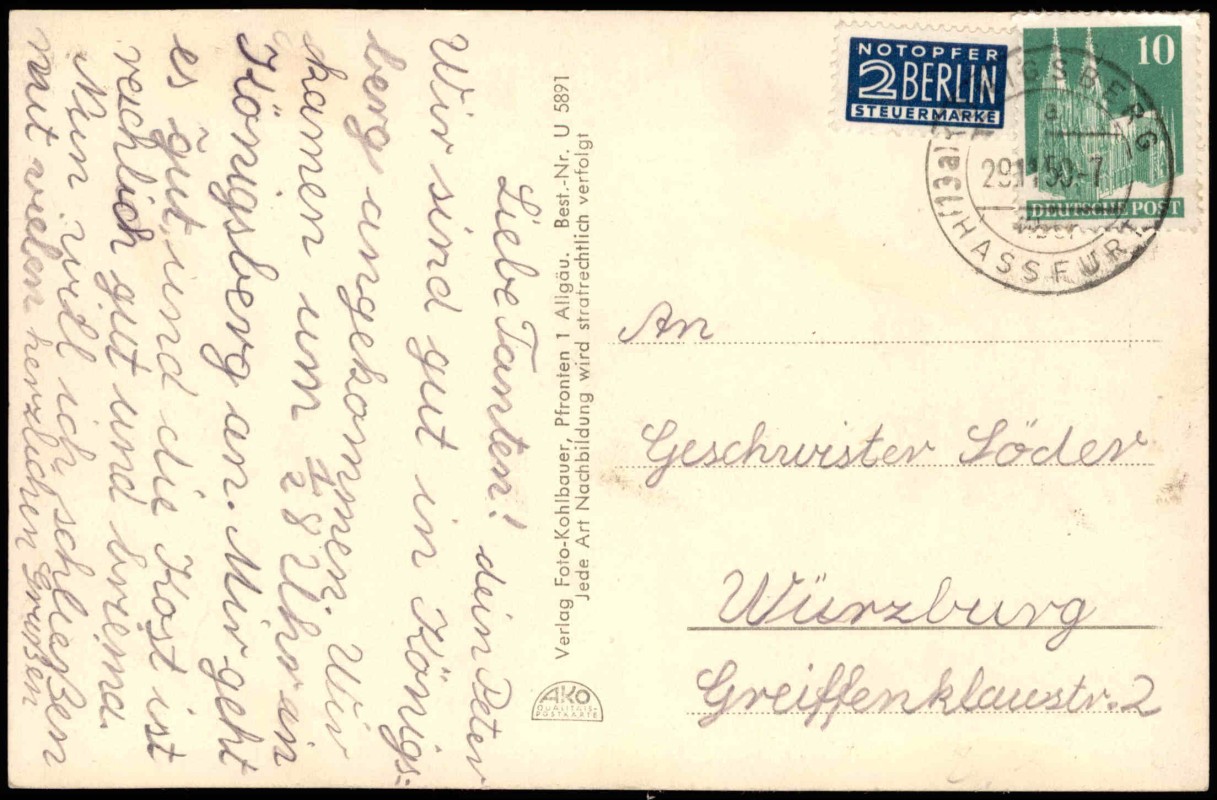 Liebe Tanten!
Wir sind gut in Königs=
berg angekommen. Wir
kamen um ½ 8 Uhr in
Königsberg an. Mir geht
es gut, und die Kost ist
reichlich gut und
Nun will ich schließen
mit vielen herzlichen Grüßen
dein Peter
Verlag Foto-Kohlbauer, Pfronten 1 Allgäu. Best.-Nr. U 5891
Jede Art Nachbildung wird strafrechtlich verfolgt
AKO
QUALITÄTS-
POSTKARTE
NOTOPFER
2 BERLIN
STEUERMARKE
10
DEUTSCHE POST
a
29.11.50-7
An
Geschwister Söder
Würzburg
Greiffenklaustr. 2